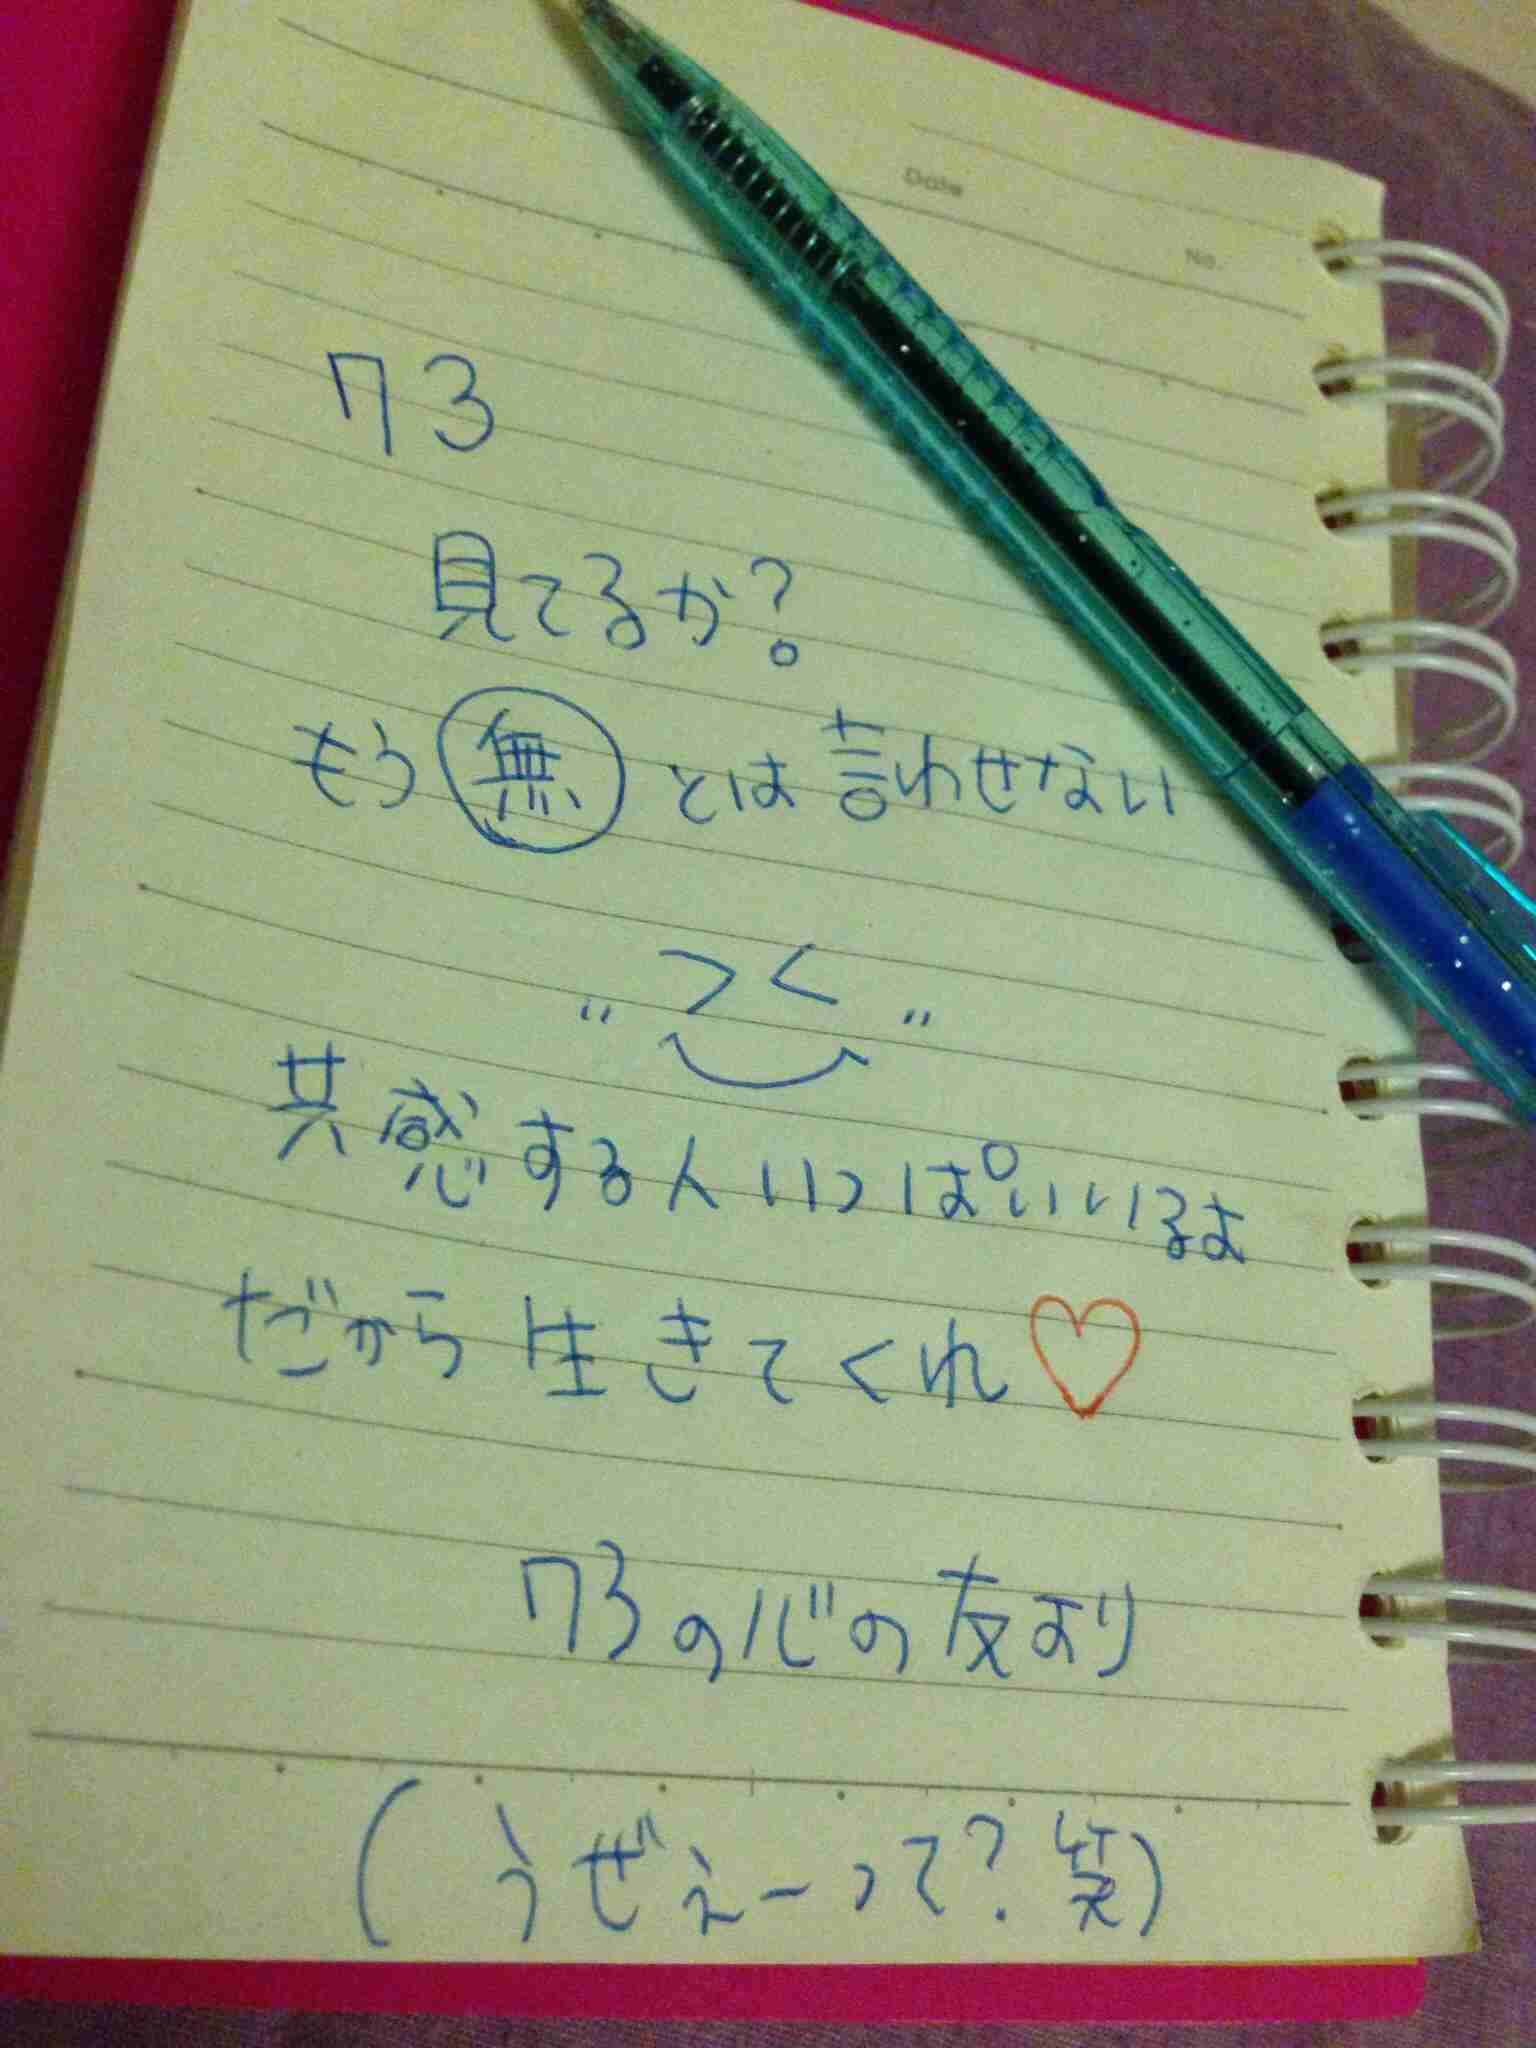 Date
No.
73
見てるか?
もう 無 とは 言わせない
共感する人いっぱいいるよ
だから 生きてくれ♡
73の心の友より
(うぜぇーって?笑)